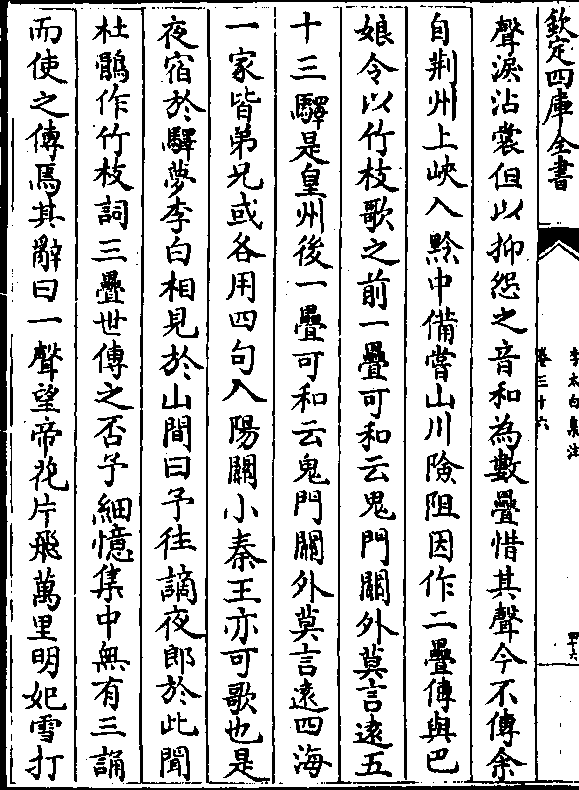 欽定四庫全書
李太白集注
卷三十六
四十六
聲淚沾裳但以抑怨之音和為數疊惜其聲今不傳余
自荆州上峽入黔中備嘗山川險阻因作二疊傳與巴
娘令以竹枝歌之前一疊可和云鬼門關外莫言遠五
十三驛是皇州後一疊可和云鬼門關外莫言遠四海
一家皆弟兄或各用四句入陽關小秦王亦可歌也是
夜宿於驛夢李白相見於山間曰予往謫夜郎於此聞
杜鵑作竹枝詞三疊世傳之否予細憶集中無有三誦
而使之傳焉其辭曰一聲望帝花片飛萬里明妃雪打